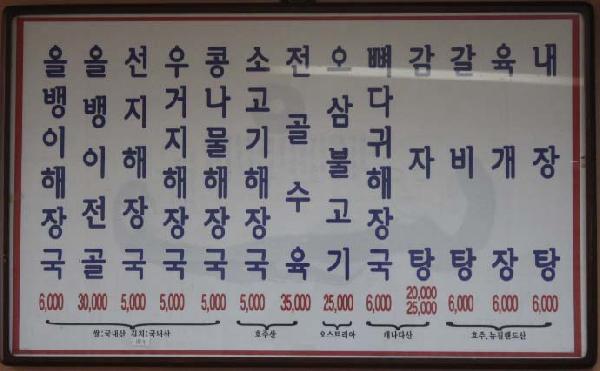 올뱅이해장국
올뱅이전골
선지해장국
우거지해장국
콩나물해장국
소고기해장국
전골수육
오삼불고기
뼈다귀해장국
감자탕
갈비탕
육개장
내장탕
6,000 30,000 5,000 5,000 5,000 5,000 35,000 25,000 6,000 20,000 25,000 6,000 6,000 6,000
쌀:국내산 김치:국내산 호주산 오스트리아 캐나다산 호주,뉴질랜드산